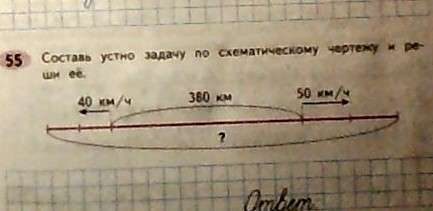 55 Составь устно задачу по схематическому чертежу и ре-
ши её.
40 км/ч 380 км 50 км/ч
?
Ответ